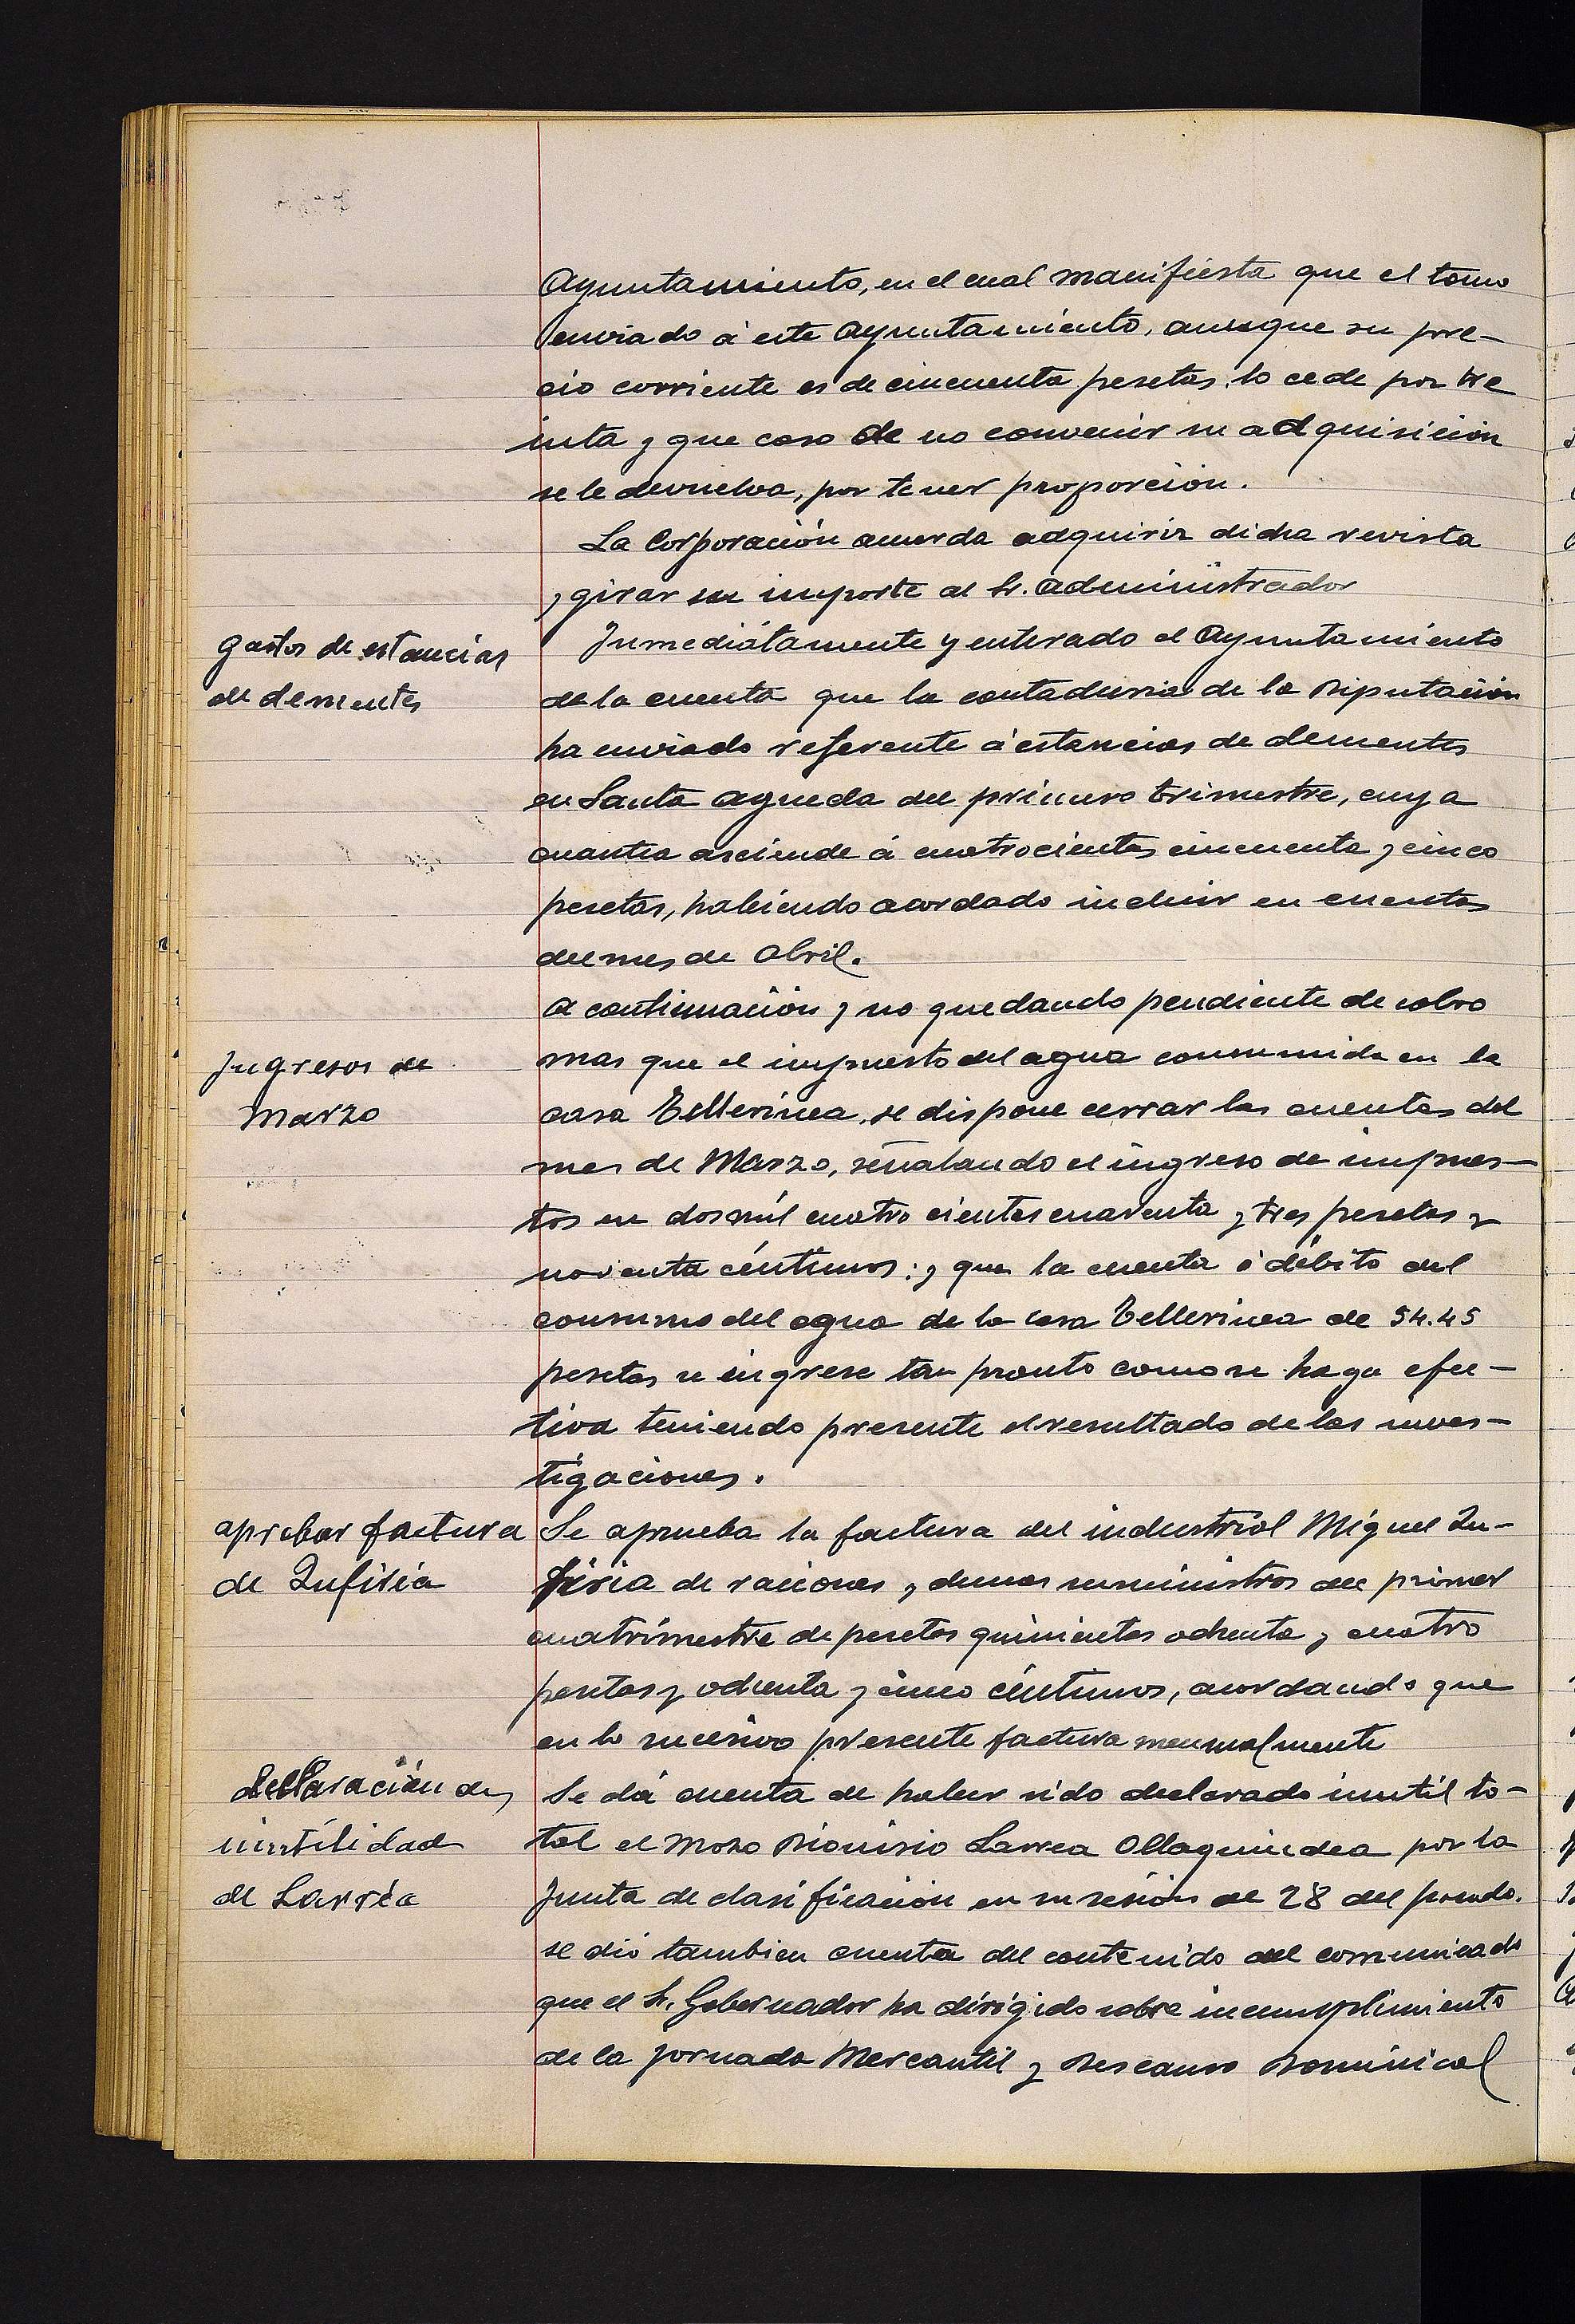 Ayuntamiento, en el cual manifiesta que el tomo
enviado á este Ayuntamiento, aunque su pre-
cio corriente es de cincuenta pesetas, lo cede por tre
inta y que caso de no convenir su adquisición
se le devuelva, por tener proporción.
La Corporación acuerda adquirir dicha revista
y girar su importe al Sr. Administrador
gastos de estancias
de dementes
Inmediátamente y enterado el Ayuntamiento
de la cuenta que la contaduria de la Diputación
ha enviado referente á estancias de dementes
en Santa Agueda del primero trimestre, cuya
cuantia asciende á cuatrocientas cincuenta y cinco
pesetas, habiendo acordado incluir en cuentas
del mes de Abril.
Ingresos de
Marzo
A continuación y no quedando pendiente de cobro
mas que el impuesto del agua consumida en la
casa Tellerinea, se dispone cerrar las cuentas del
mes de Marzo, señalando el ingreso de impues-
tos en dos mil cuatro cientas cuarenta y tres pesetas y
noventa céntimos: y que la cuenta ó débito del
consumo del agua de la casa Tellerinea de 54.45
pesetas se ingrese tan pronto como se haga efec-
tiva teniendo presente el resultado de las inves-
tigaciones.
aprobar factura
de Zufiria
Se aprueba la factura del industrial Miguel Zu-
firia de raciones y demas suministros del primer
cuatrimestre de pesetas quinientas ochenta y cuatro
pesetas y ochenta y cinco céntimos, acordando que
en lo sucesivo presente factura mensualmente
declaración de
inutilidad
de Larrea
Se dá cuenta de haber sido declarado inutil to-
tal el mozo Dionisio Larrea Ollaquindea por la
Junta de clasificación en su sesión de 28 del pasado.
se dió tambien cuenta del contenido del comunicado
que el Sr. Gobernador ha dirigido sobre incumplimiento
de la jornada Mercantil y Descanso Dominical